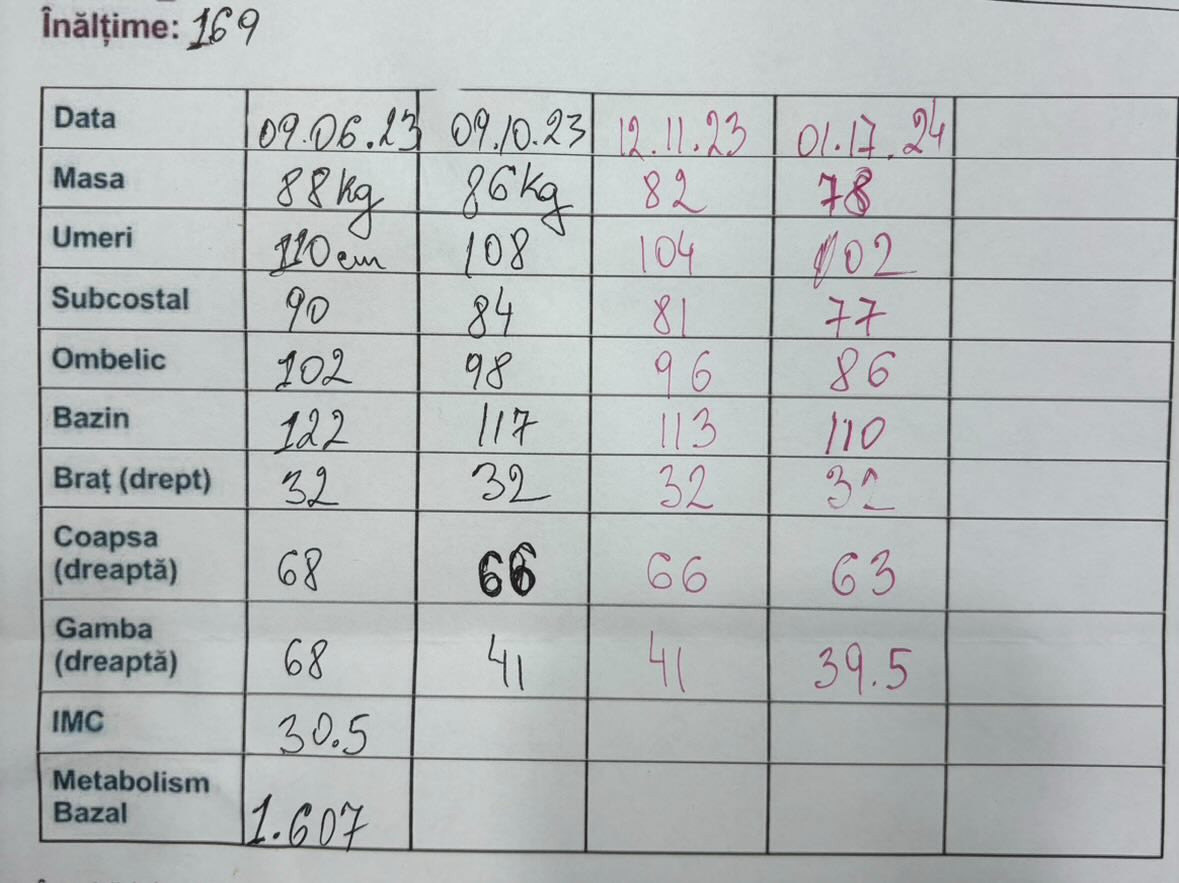 Înălțime: 169
Data 09.06.23 09.10.23 12.11.23 01.17.24
Masa 88kg 86kg 82 78
Umeri 110cm 108 104 102
Subcostal 90 84 81 77
Ombelic 102 98 96 86
Bazin 122 117 113 110
Braț (drept) 32 32 32 32
Coapsa
(dreaptă) 68 66 66 63
Gamba
(dreaptă) 68 41 41 39.5
IMC 30.5
Metabolism
Bazal 1.607